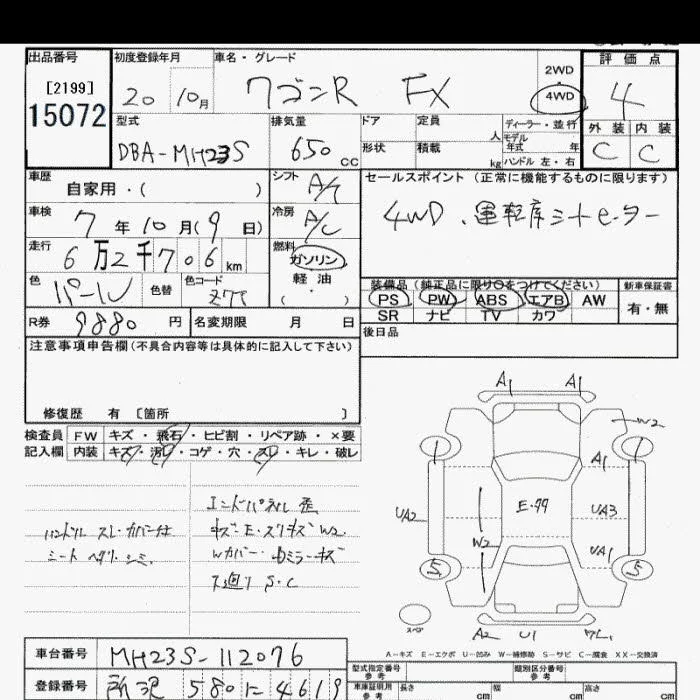 出品番号
[2199]
15072
初度登録年月
20 10月
車名・グレード
ワゴンR FX
2WD
4WD
評価点
4
外装 内装
C C
型式
DBA-MH23S
排気量
650cc
ドア
定員
人
形状
積載
kg
ディーラー・並行
モデル年式 年
ハンドル 左・右
車歴
自家用・( )
シフト
A/T
セールスポイント(正常に機能するものに限ります)
4WD、運転席シートヒーター
車検
7年10月(9日)
冷房
A/C
走行
6万2千706km
燃料
ガソリン
軽油
・
( )
色
パール
色替
色コード
Z7T
装備品(純正品に限り○をつけてください)
PS PW ABS エアB AW
SR ナビ TV カワ
新車保証書
有・無
R券
9880円
名変期限 月 日
後日品
注意事項申告欄(不具合内容等は具体的に記入して下さい)
修復歴 有 〔箇所 〕
検査員記入欄
FW キズ・飛石・ヒビ割・リペア跡・×要
内装 キズ・汚レ・コゲ・穴・スレ・キレ・破レ
ハンドル スレ・カバー付
シート ヘタリ・シミ
エンドパネル 歪
キズ・E・スリキズ W2
Wカバー・ミラーキズ
下廻り S・C
A1 A1
W2
1 1
A1
E・99
UA2
UA3
W2
UA1
5 5
スペア
A2 U1
A-キズ E-エクボ U-凹み W-補修跡 S-サビ C-腐食 XX-交換済
車台番号
MH23S-112076
登録番号
所沢 580 に 4619
型式指定番号
参考
類別区分番号
参考
車庫証明用
参考
長さ cm
幅 cm
高さ cm